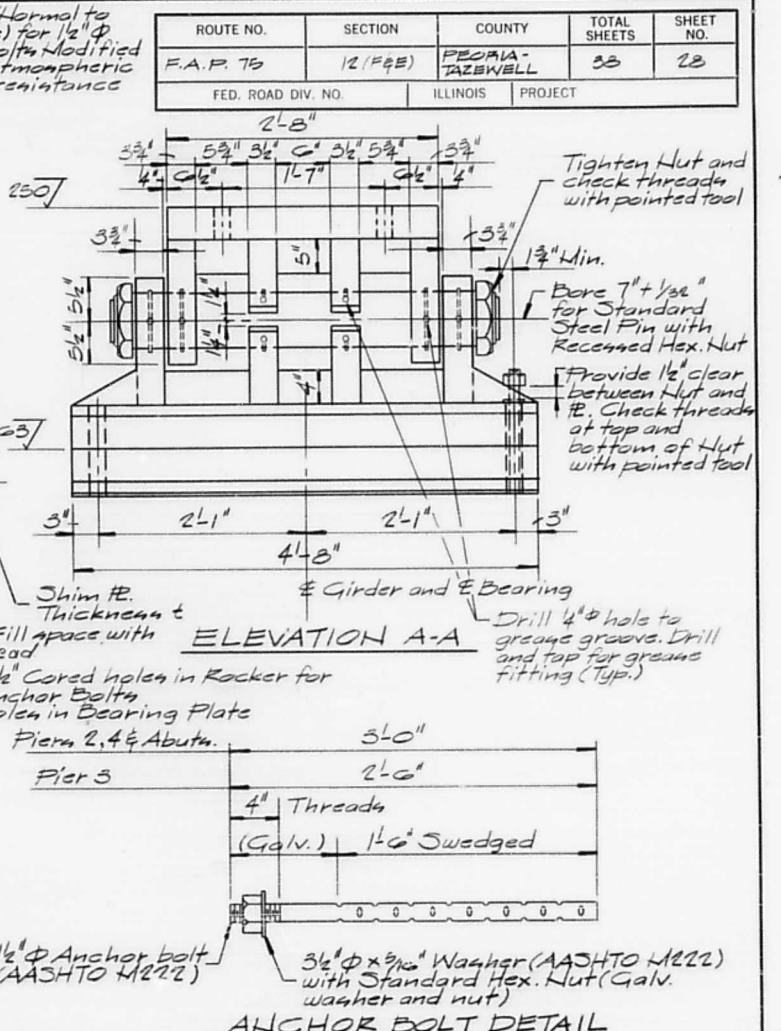 Normal to
) for 1½"Φ
Bolts Modified
Atmospheric
Resistance
ROUTE NO. SECTION COUNTY TOTAL SHEETS SHEET NO.
F.A.P. 75 12 (F&E) PEORIA-TAZEWELL 38 28
FED. ROAD DIV. NO. ILLINOIS PROJECT
2'-8"
3¾" 5¾" 3½" 6" 3½" 5¾" 3¾"
4" 6½" 1'-7" 6½" 4"
250
3¾" 5" 3¾"
1¾" Min.
Tighten Nut and
check threads
with pointed tool
5½" 1¼"
5½" 1¼"
4"
Bore 7" + 1/32"
for Standard
Steel Pin with
Recessed Hex. Nut
Provide 1½" clear
between Nut and
PL. Check threads
at top and
bottom of Nut
with pointed tool
63
3" 2'-1" 2'-1" 3"
4'-8"
℄ Girder and ℄ Bearing
Shim PL.
Thickness t
Fill space with
ead
ELEVATION A-A
Drill ¼"Φ hole to
grease groove. Drill
and tap for grease
fitting (Typ.)
½" Cored holes in Rocker for
Anchor Bolts
Holes in Bearing Plate
Piers 2, 4 & Abuts.
3'-0"
Pier 3
2'-6"
4" Threads
(Galv.) 1'-6" Swedged
1½"Φ Anchor bolt
(AASHTO M222)
3½"Φ x 5/16" Washer (AASHTO M222)
with Standard Hex. Nut (Galv.
washer and nut)
ANCHOR BOLT DETAIL